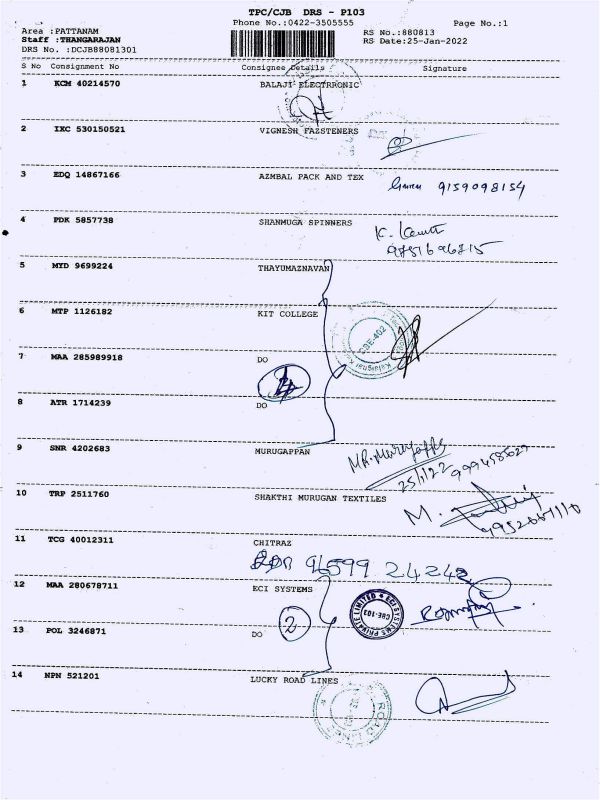 TPC/CJB DRS - P103
Phone No.:0422-3505555
Page No.:1
Area :PATTANAM
RS No.:880813
Staff :THANGARAJAN
RS Date:25-Jan-2022
DRS No. :DCJB88081301
S No Consignment No Consignee Details Signature
1 KCM 40214570 BALAJI ELECTRRONIC
2 IXC 530150521 VIGNESH FAZSTENERS
3 EDQ 14867166 AZMBAL PACK AND TEX
9159098154
4 PDK 5857738 SHANMUGA SPINNERS
5 MYD 9699224 THAYUMAZNAVAN
6 MTP 1126182 KIT COLLEGE
CBE-402
7 MAA 285989918 DO
4
8 ATR 1714239 DO
9 SNR 4202683 MURUGAPPAN
25/1/22
10 TRP 2511760 SHAKTHI MURUGAN TEXTILES
M.
11 TCG 40012311 CHITRAZ
96599 24242
12 MAA 280678711 ECI SYSTEMS
ECI SYSTEMS PRIVATE LIMITED
CBE-103
13 POL 3246871 DO
2
14 NPN 521201 LUCKY ROAD LINES